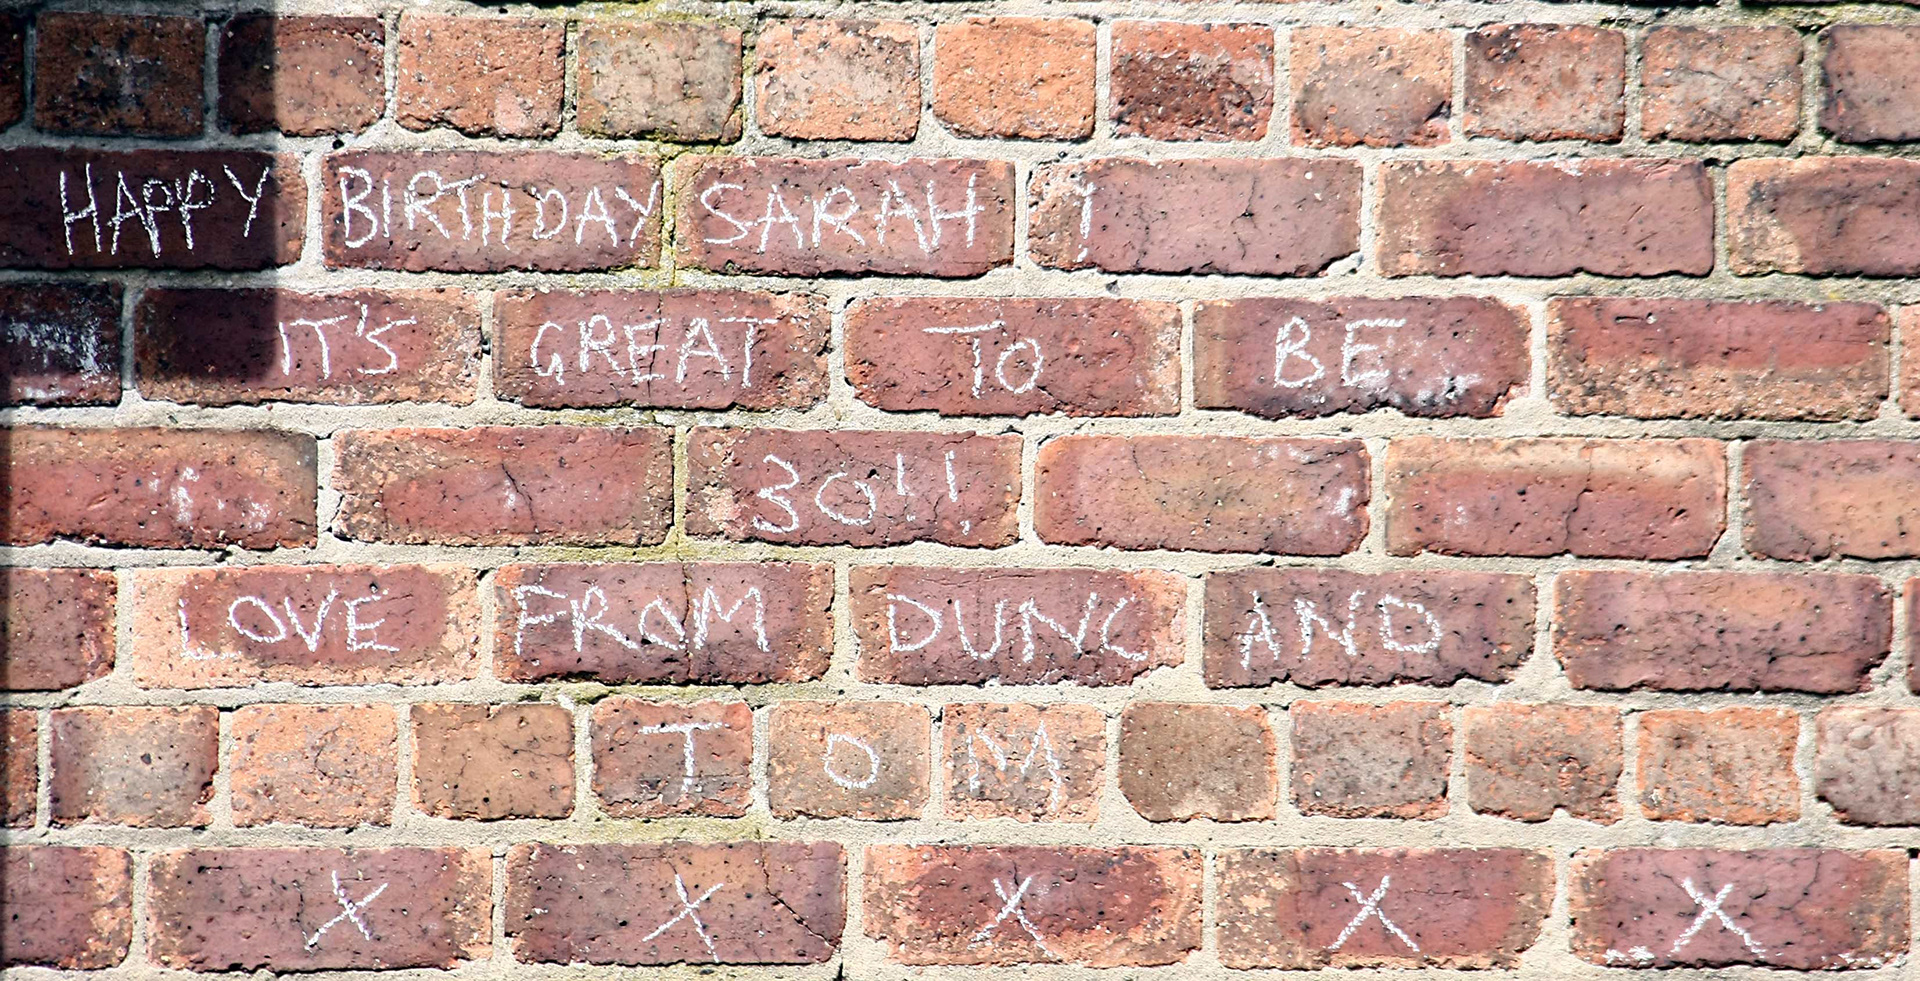 HAPPY BIRTHDAY SARAH !
IT'S GREAT TO BE
30!!
LOVE FROM DUNC AND
TOM
X X X X X